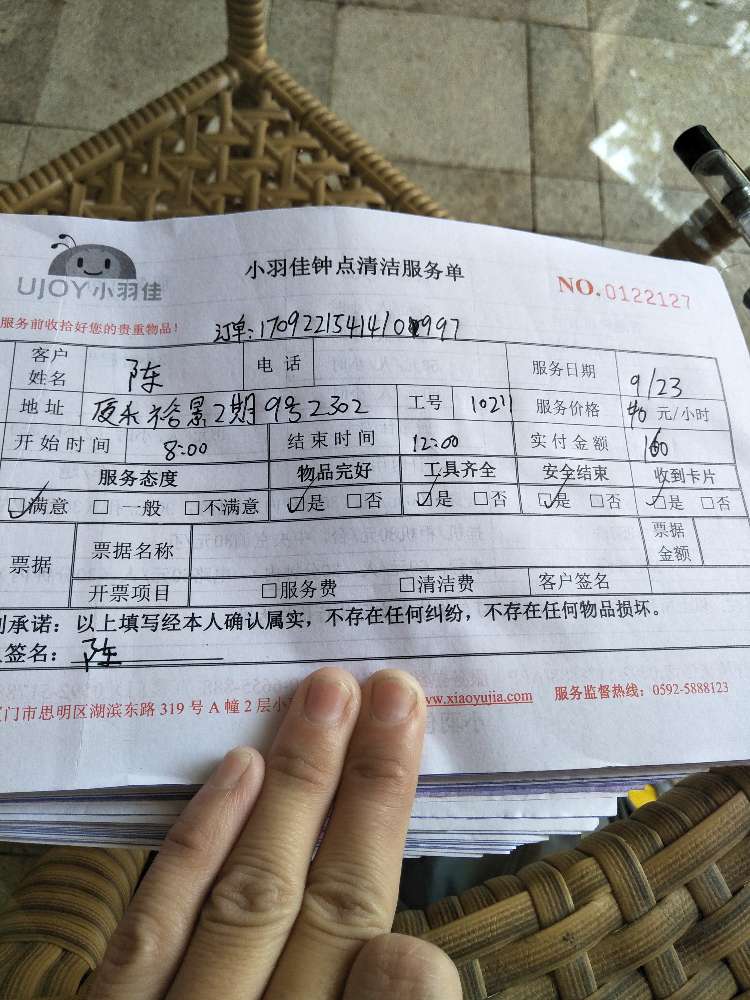 UJOY小羽佳
小羽佳钟点清洁服务单
NO.0122127
服务前收拾好您的贵重物品!
客户姓名 陈 电话 服务日期 9/23
地址 2期9号2302 工号 10211 服务价格 40 元/小时
开始时间 8:00 结束时间 12:00 实付金额 160
服务态度 物品完好 工具齐全 安全结束 收到卡片
☑满意 □一般 □不满意 ☑是 □否 ☑是 □否 ☑是 □否 ☑是 □否
票据 票据名称 票据金额
开票项目 □服务费 □清洁费 客户签名
承诺:以上填写经本人确认属实,不存在任何纠纷,不存在任何物品损坏。
签名:陈
门市思明区湖滨东路319号A幢2层小 www.xiaoyujia.com 服务监督热线:0592-5888123